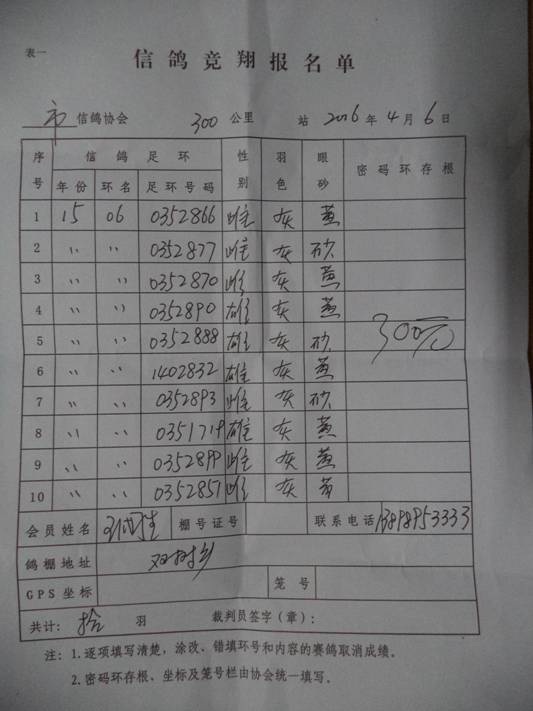 表一
信鸽竞翔报名单
市信鸽协会 300 公里 站 2016 年 4 月 6 日
序号 信鸽足环 性别 羽色 眼砂 密码环存根
年份 环名 足环号码
1 15 06 0352866 雌 灰 黄
2 〃 〃 0352877 雌 灰 砂
3 〃 〃 0352870 雌 灰 黄
4 〃 〃 0352890 雄 灰 黄
5 〃 〃 0352888 雄 灰 砂 300元
6 〃 〃 1402832 雄 灰 黄
7 〃 〃 0352893 雌 灰 砂
8 〃 〃 0351719 雄 灰 黄
9 〃 〃 0352899 雌 灰 黄
10 〃 〃 0352857 雌 灰 黄
会员姓名 棚号证号 联系电话 13898953333
鸽棚地址 双树乡
GPS坐标 笼号
共计: 拾 羽 裁判员签字(章):
注: 1.逐项填写清楚,涂改、错填环号和内容的赛鸽取消成绩。
2.密码环存根、坐标及笼号栏由协会统一填写。